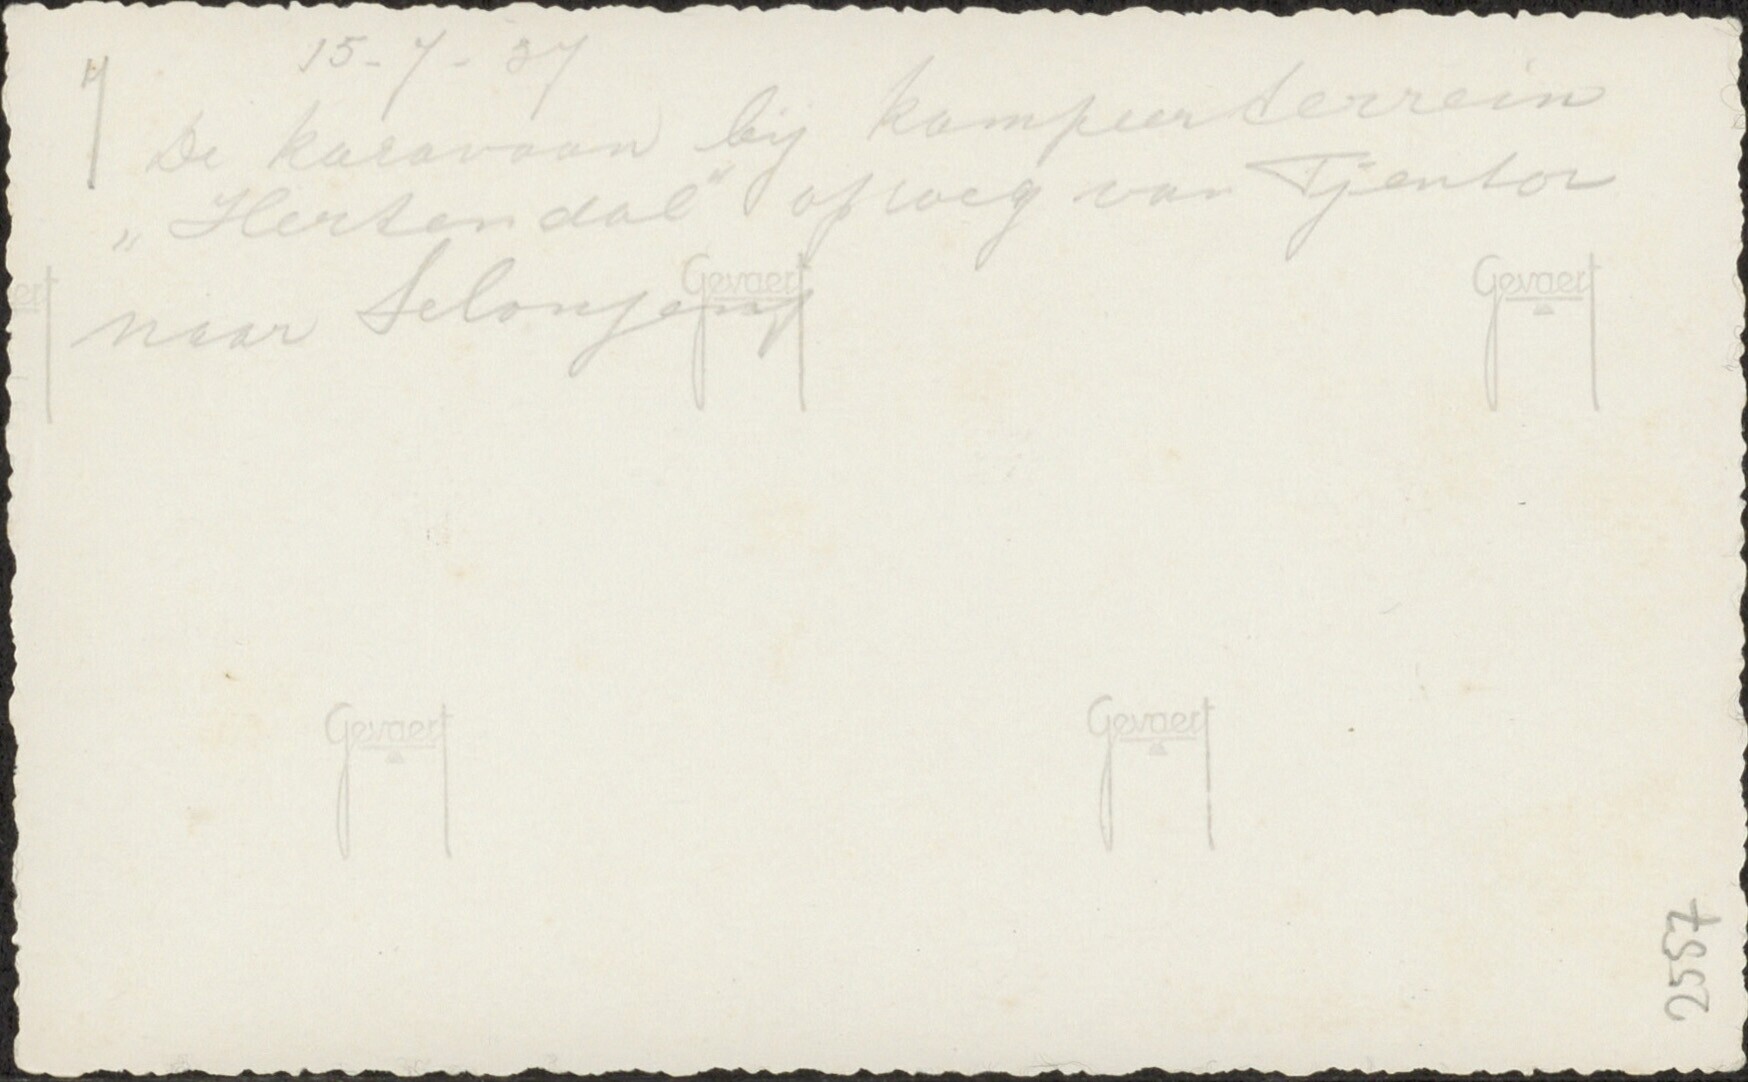 15-7-37
De karavaan bij kampeerterrein
„Hertendal" op weg van Tjentor
naar Selonjeng
Gevaert
Gevaert
Gevaert
Gevaert
2557